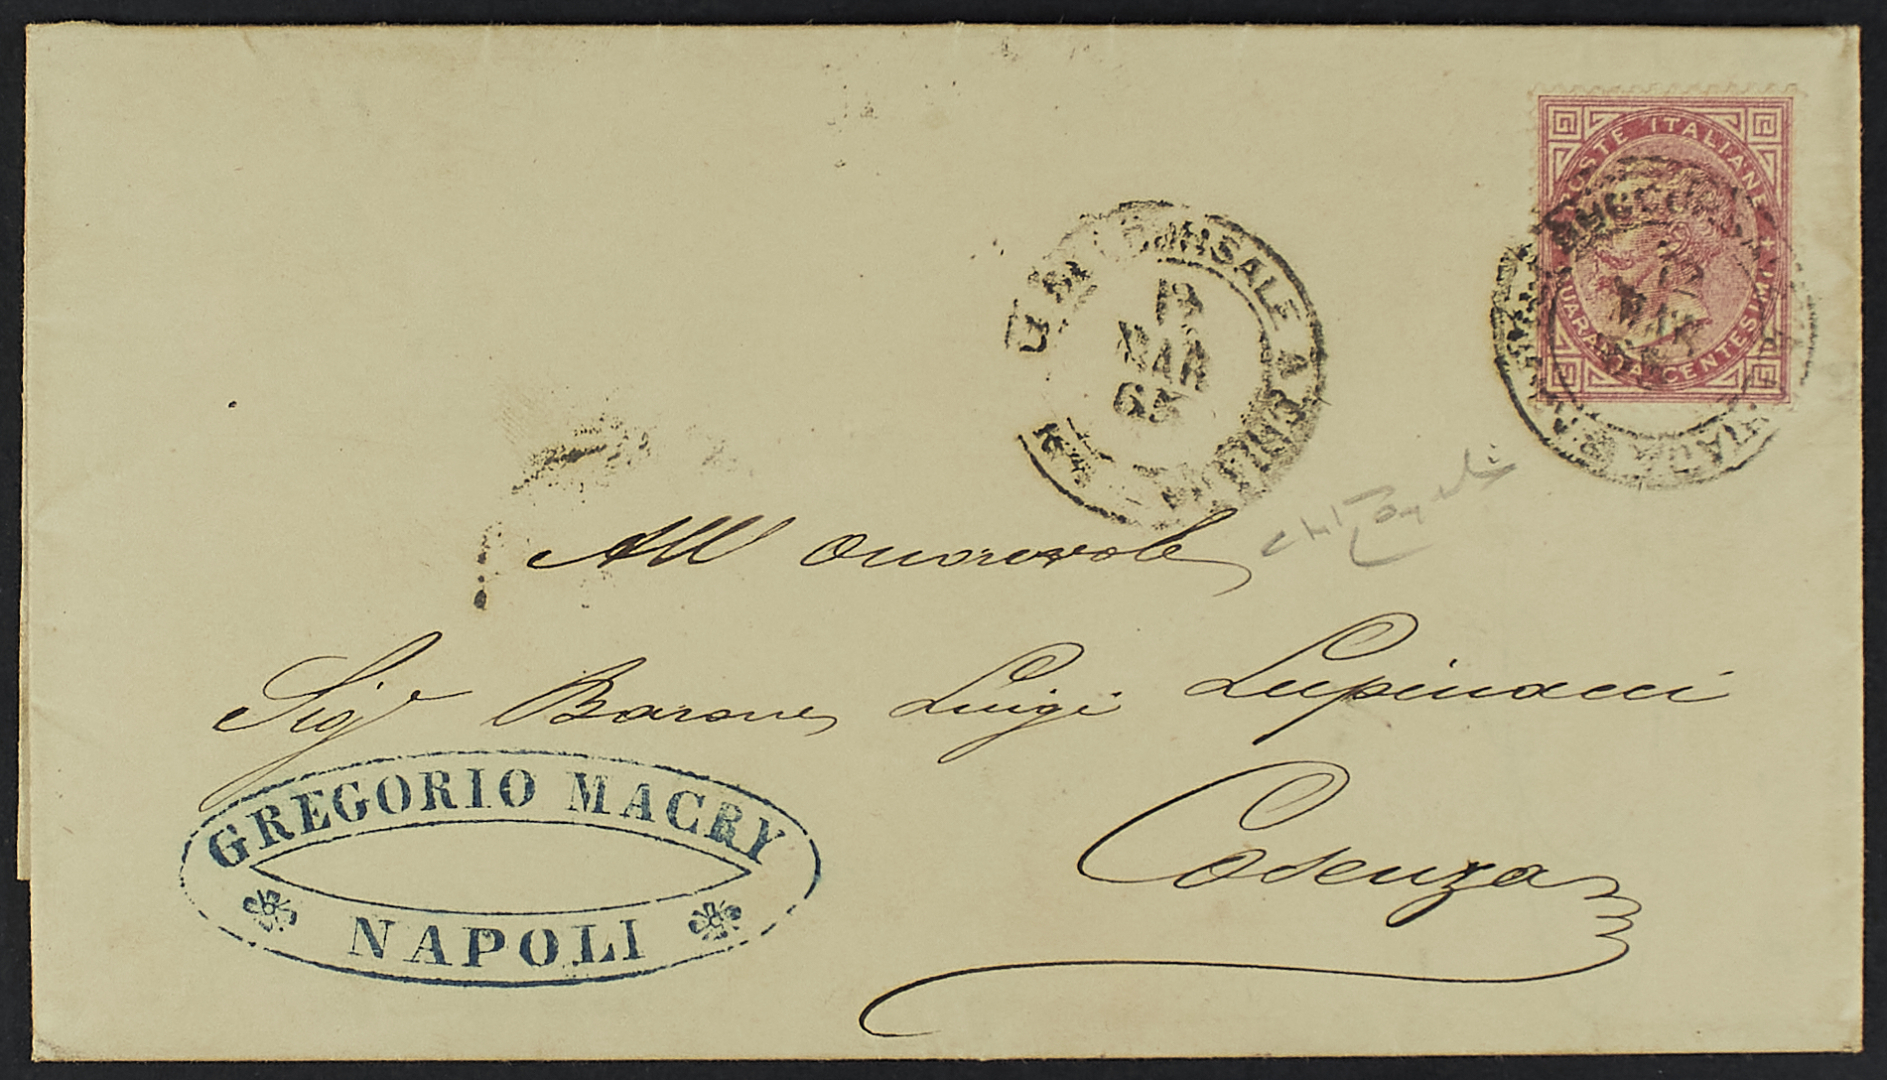 POSTE ITALIANE
QUARANTA CENTESIMI
SUCCURSALE A
13
MAR
65
All' Onorevole
Sigr Barone Luigi Lupinacci
Cosenza
GREGORIO MACRY
NAPOLI